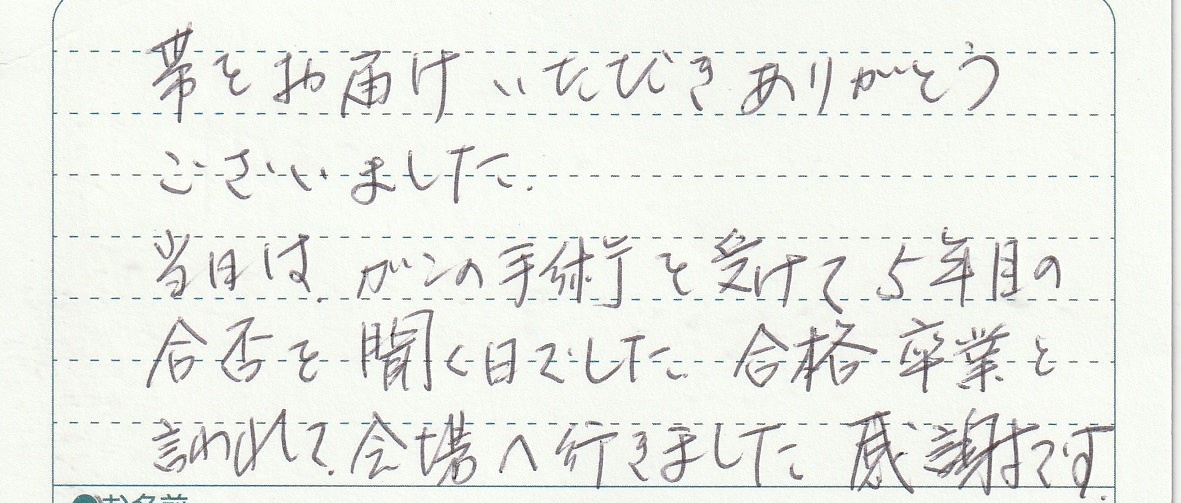 帯をお届けいただきありがとう
ございました.
当日は、ガンの手術を受けて5年目の
合否を聞く日でした 合格卒業と
言われて、会場へ行きました 感謝です.
●お名前